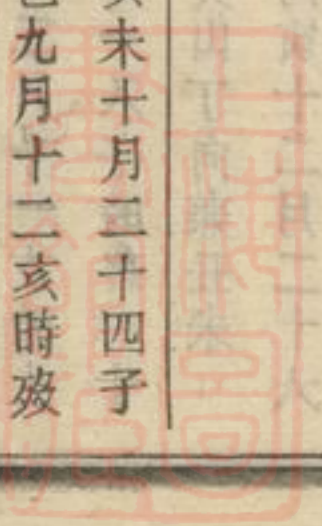 未十月二十四子
九月十二亥時歿